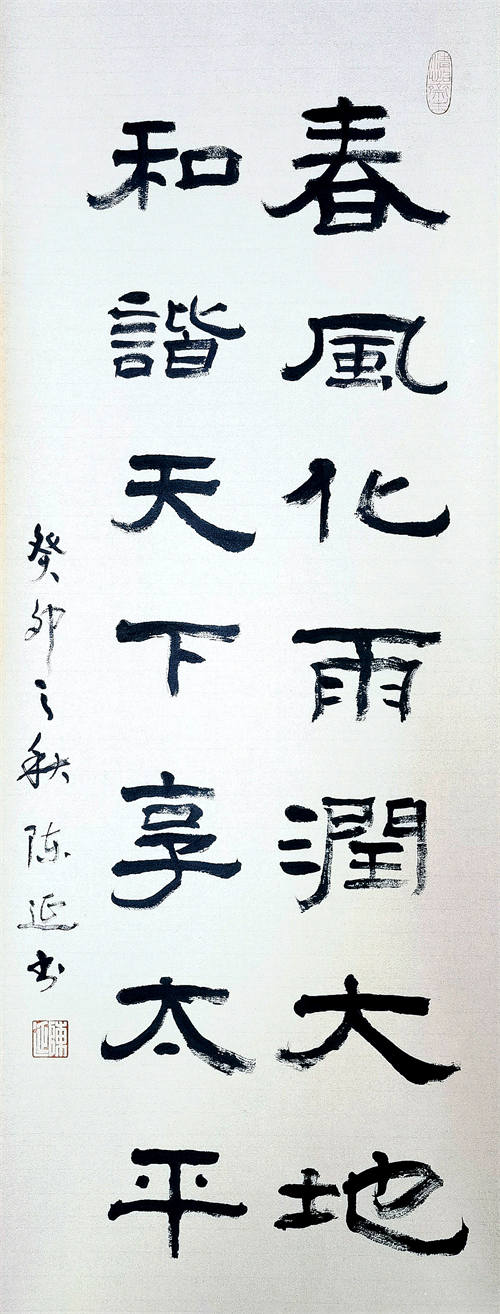 春風化雨潤大地
和諧天下享太平
癸卯之秋 陈延书
陳延